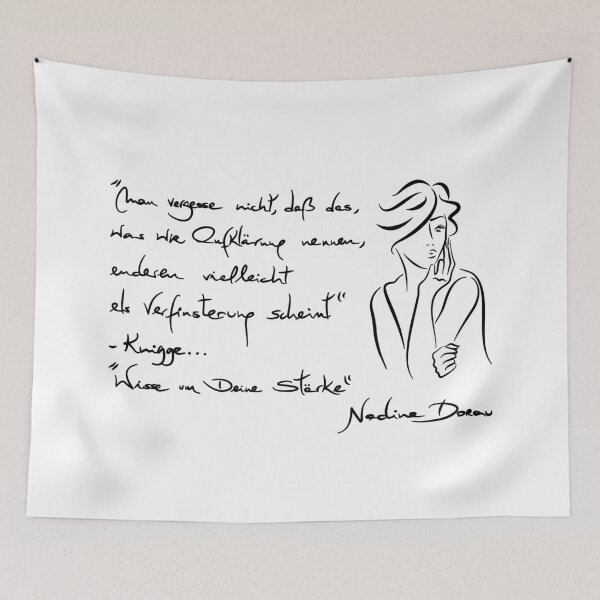 "Man vergesse nicht, daß das,
was wir Aufklärung nennen,
anderen vielleicht
als Verfinsterung scheint"
- Knigge...
"Wisse um Deine Stärke"
Nadine Dorau